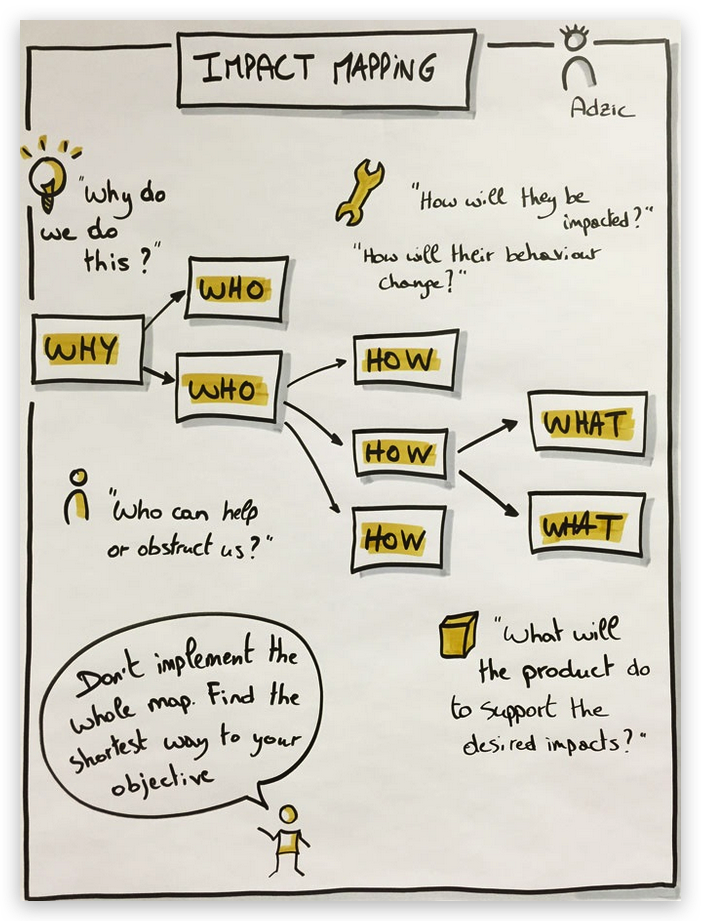 IMPACT MAPPING
Adzic
"Why do
we do
this?"
"How will they be
impacted?"
"How will their behaviour
change?"
WHY
WHO
WHO
HOW
HOW
HOW
WHAT
WHAT
"Who can help
or obstruct us?"
"What will
the product do
to support the
desired impacts?"
Don't implement the
whole map. Find the
shortest way to your
objective